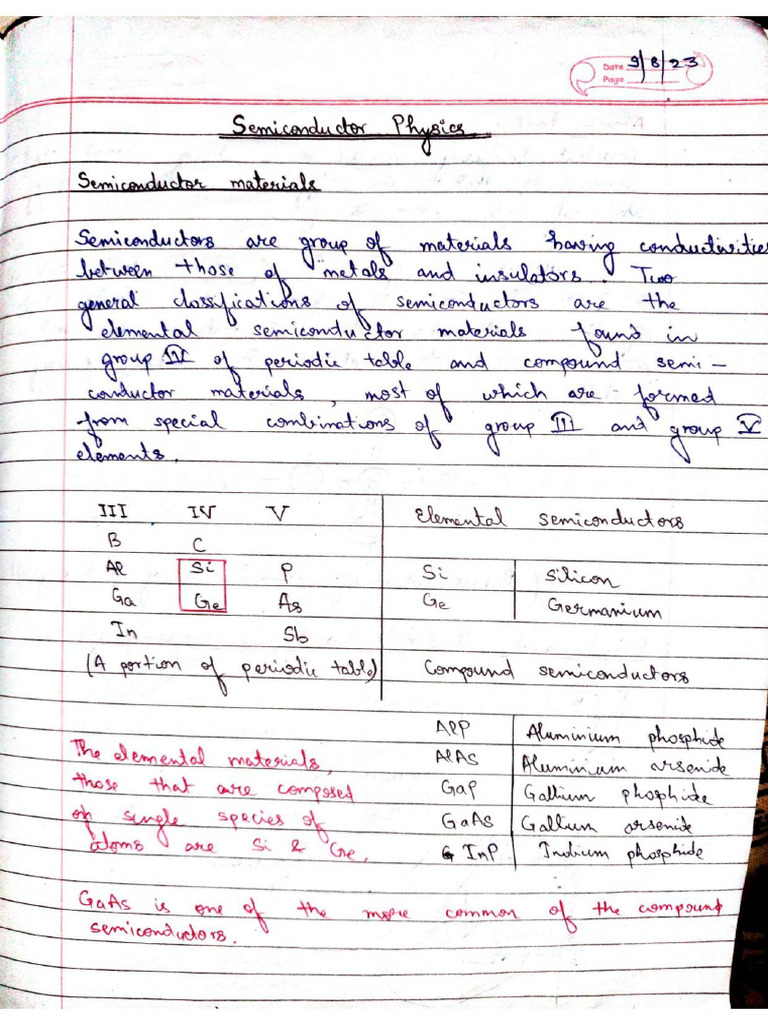 Date 9/8/23
Page
Semiconductor Physics
Semiconductor materials
Semiconductors are group of materials having conductivities
between those of metals and insulators. Two
general classifications of semiconductors are the
elemental semiconductor materials found in
group IV of periodic table and compound semi-
conductor materials, most of which are formed
from special combinations of group III and group V
elements.
III IV V
B C
Al Si P
Ga Ge As
In Sb
(A portion of periodic table)
Elemental semiconductors
Si Silicon
Ge Germanium
Compound semiconductors
AlP Aluminium phosphide
AlAs Aluminium arsenide
GaP Gallium phosphide
GaAs Gallium arsenide
InP Indium phosphide
The elemental materials,
those that are composed
of single species of
atoms are Si & Ge.
GaAs is one of the more common of the compound
semiconductors.